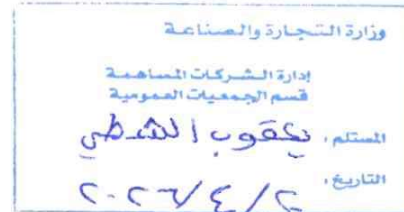 وزارة التجارة والصناعة
إدارة الشركات المساهمة
قسم الجمعيات العمومية
المستلم: يعقوب الشطي
التاريخ: